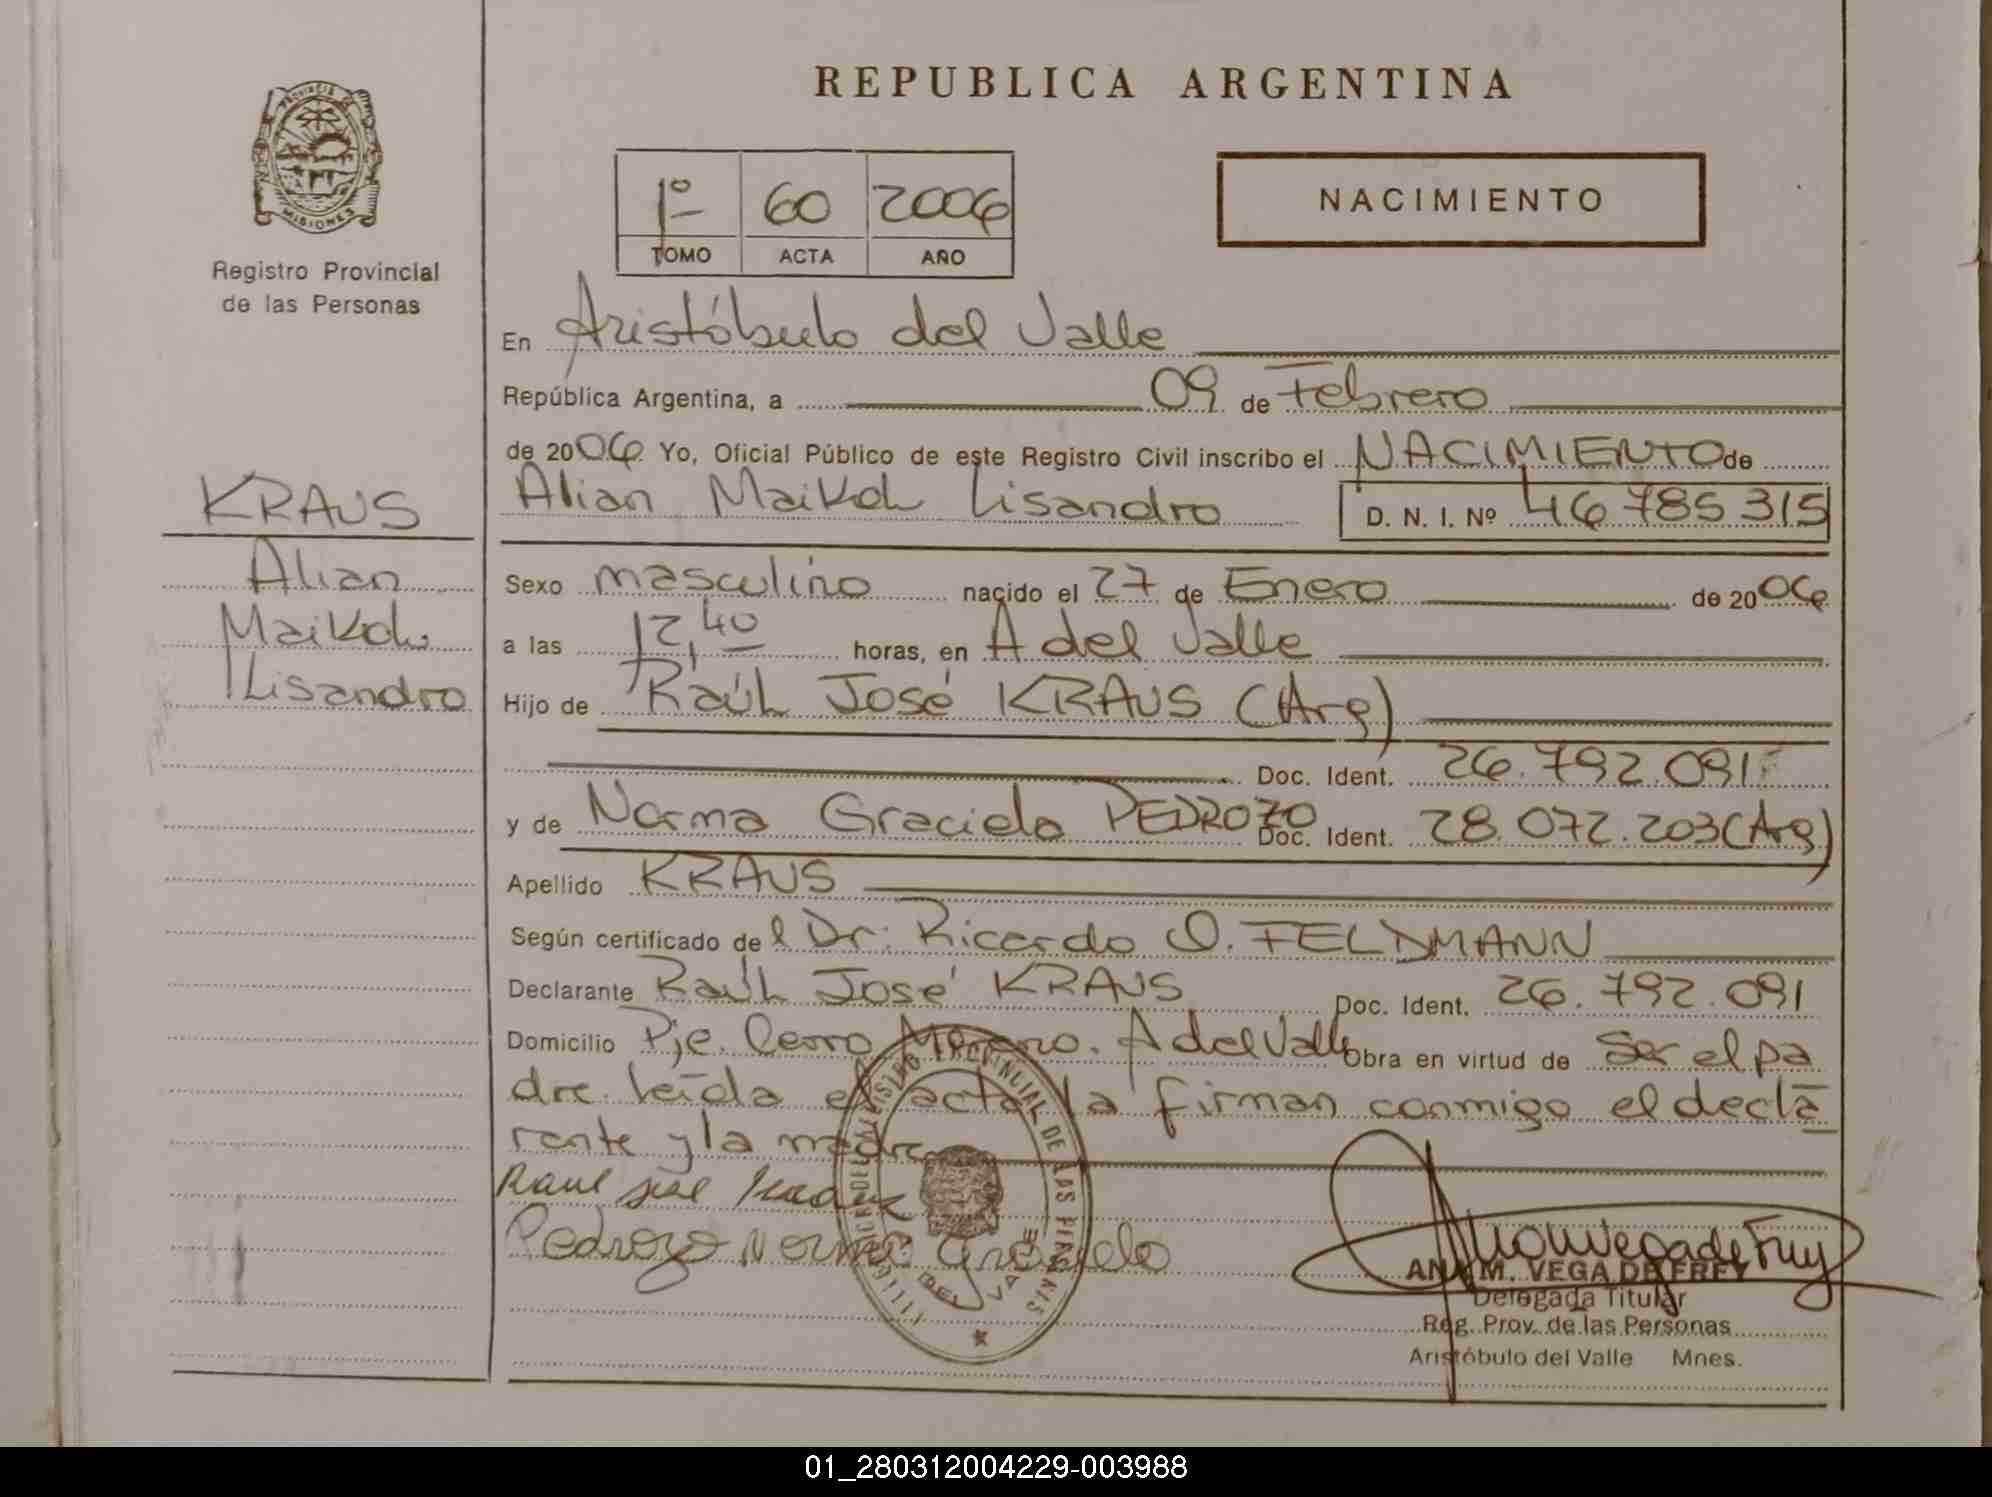 REPUBLICA ARGENTINA
PROVINCIA DE
MISIONES
Registro Provincial
de las Personas
1º 60 2006
TOMO ACTA AÑO
NACIMIENTO
En Aristóbulo del Valle
República Argentina, a 09 de Febrero
de 2006 Yo, Oficial Público de este Registro Civil inscribo el NACIMIENTO de
Alian Maikol Lisandro D. N. I. Nº 46 785 315
KRAUS
Alian
Maikol
Lisandro
Sexo masculino nacido el 27 de Enero de 2006
a las 12,40 horas, en A del Valle
Hijo de Raúl José KRAUS (Arg)
Doc. Ident. 26.792.091
y de Norma Graciela PEDROZO Doc. Ident. 28.072.203 (Arg)
Apellido KRAUS
Según certificado del Dr. Ricardo O. FELDMANN
Declarante Raúl José KRAUS Doc. Ident. 26.792.091
Domicilio Pje. Cerro Moreno. A del Valle Obra en virtud de ser el pa
dre leída el acta la firman conmigo el decla
rante y la madre
Raul jose
Pedrozo Norma Graciela
REGISTRO PROVINCIAL DE LAS PERSONAS
DEL VALLE
Ana M Vega de Frey
ANA M. VEGA DE FREY
Delegada Titular
Reg. Prov. de las Personas
Aristóbulo del Valle Mnes.
01_280312004229-003988